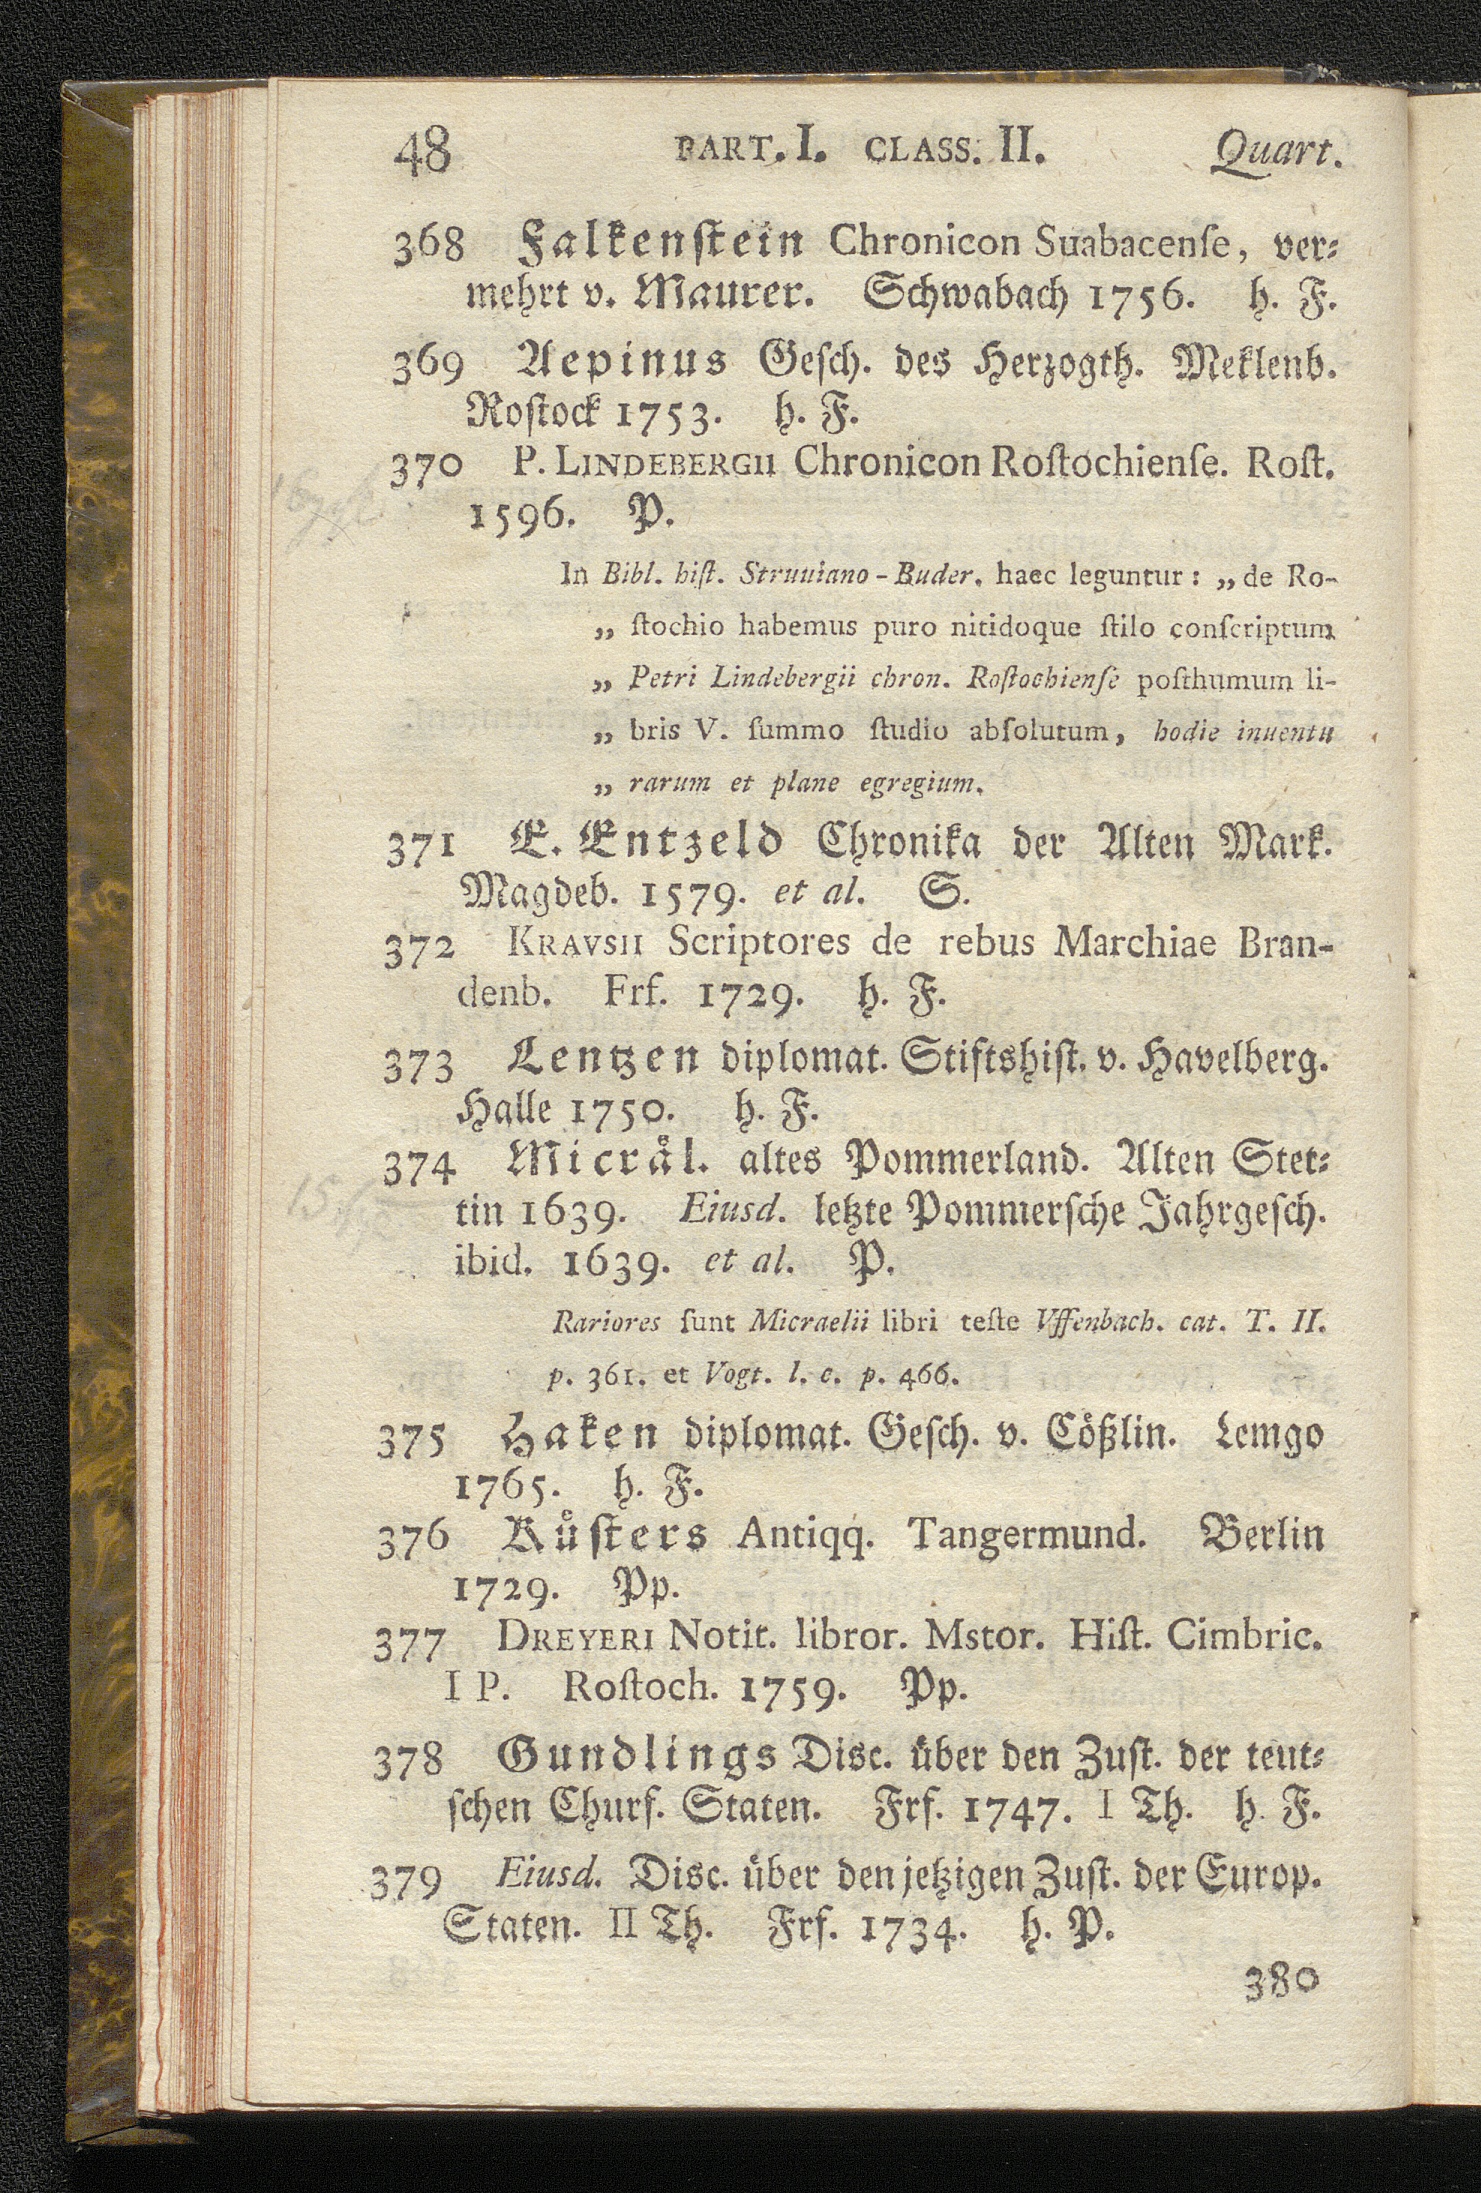 48 PART. I. CLASS. II. Quart.
368 Falkenſtein Chronicon Suabacenſe, ver⸗
mehrt v. Maurer. Schwabach 1756. h. F.
369 Aepinus Geſch. des Herzogth. Meklenb.
Roſtock 1753. h. F.
370 P. LINDEBERGII Chronicon Roſtochienſe. Roſt.
1596. P.
In Bibl. hiſt. Struuiano - Buder. haec leguntur: „de Ro-
„ ſtochio habemus puro nitidoque ſtilo conſcriptum
„ Petri Lindebergii chron. Roſtochienſe poſthumum li-
„ bris V. ſummo ſtudio abſolutum, hodie inuentu
„ rarum et plane egregium.
371 E. Entzeld Chronika der Alten Mark.
Magdeb. 1579. et al. S.
372 KRAVSII Scriptores de rebus Marchiae Bran-
denb. Frf. 1729. h. F.
373 Lentzen diplomat. Stiftshiſt. v. Havelberg.
Halle 1750. h. F.
374 Micraͤl. altes Pommerland. Alten Stet⸗
tin 1639. Eiusd. letzte Pommerſche Jahrgeſch.
ibid. 1639. et al. P.
Rariores ſunt Micraelii libri teſte Vffenbach. cat. T. II.
p. 361. et Vogt. l. c. p. 466.
375 Haken diplomat. Geſch. v. Coͤßlin. Lemgo
1765. h. F.
376 Kuͤſters Antiqq. Tangermund. Berlin
1729. Pp.
377 DREYERI Notit. libror. Mstor. Hiſt. Cimbric.
I P. Roſtoch. 1759. Pp.
378 Gundlings Disc. uͤber den Zuſt. der teut⸗
ſchen Churf. Staten. Frf. 1747. I Th. h. F.
379 Eiusd. Disc. uͤber den jetzigen Zuſt. der Europ.
Staten. II Th. Frf. 1734. h. P.
380